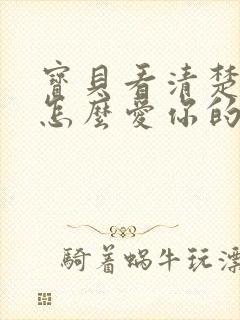 寶貝看清楚
怎麼愛你的
騎着蝸牛玩漂